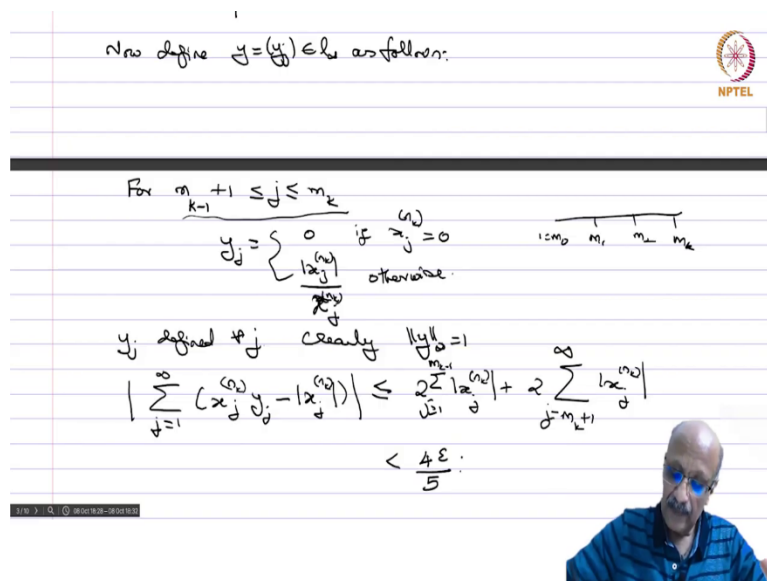 Now define y=(y_j) ∈ l_∞ as follows:
NPTEL
For m_{k-1} +1 ≤ j ≤ m_k
y_j = { 0 if x_j^{(n_k)} = 0
|x_j^{(n_k)}| / x_j^{(n_k)} otherwise.
1=m_0 m_1 m_2 m_k
y_j defined ∀ j clearly ||y||_∞ = 1
| ∑_{j=1}^{∞} (x_j^{(n_k)} y_j − |x_j^{(n_k)}|) | ≤ 2 ∑_{j=1}^{m_{k-1}} |x_j^{(n_k)}| + 2 ∑_{j=m_k+1}^{∞} |x_j^{(n_k)}|
< 4ε/5 .
3/10 08 Oct 18:28 – 08 Oct 18:32